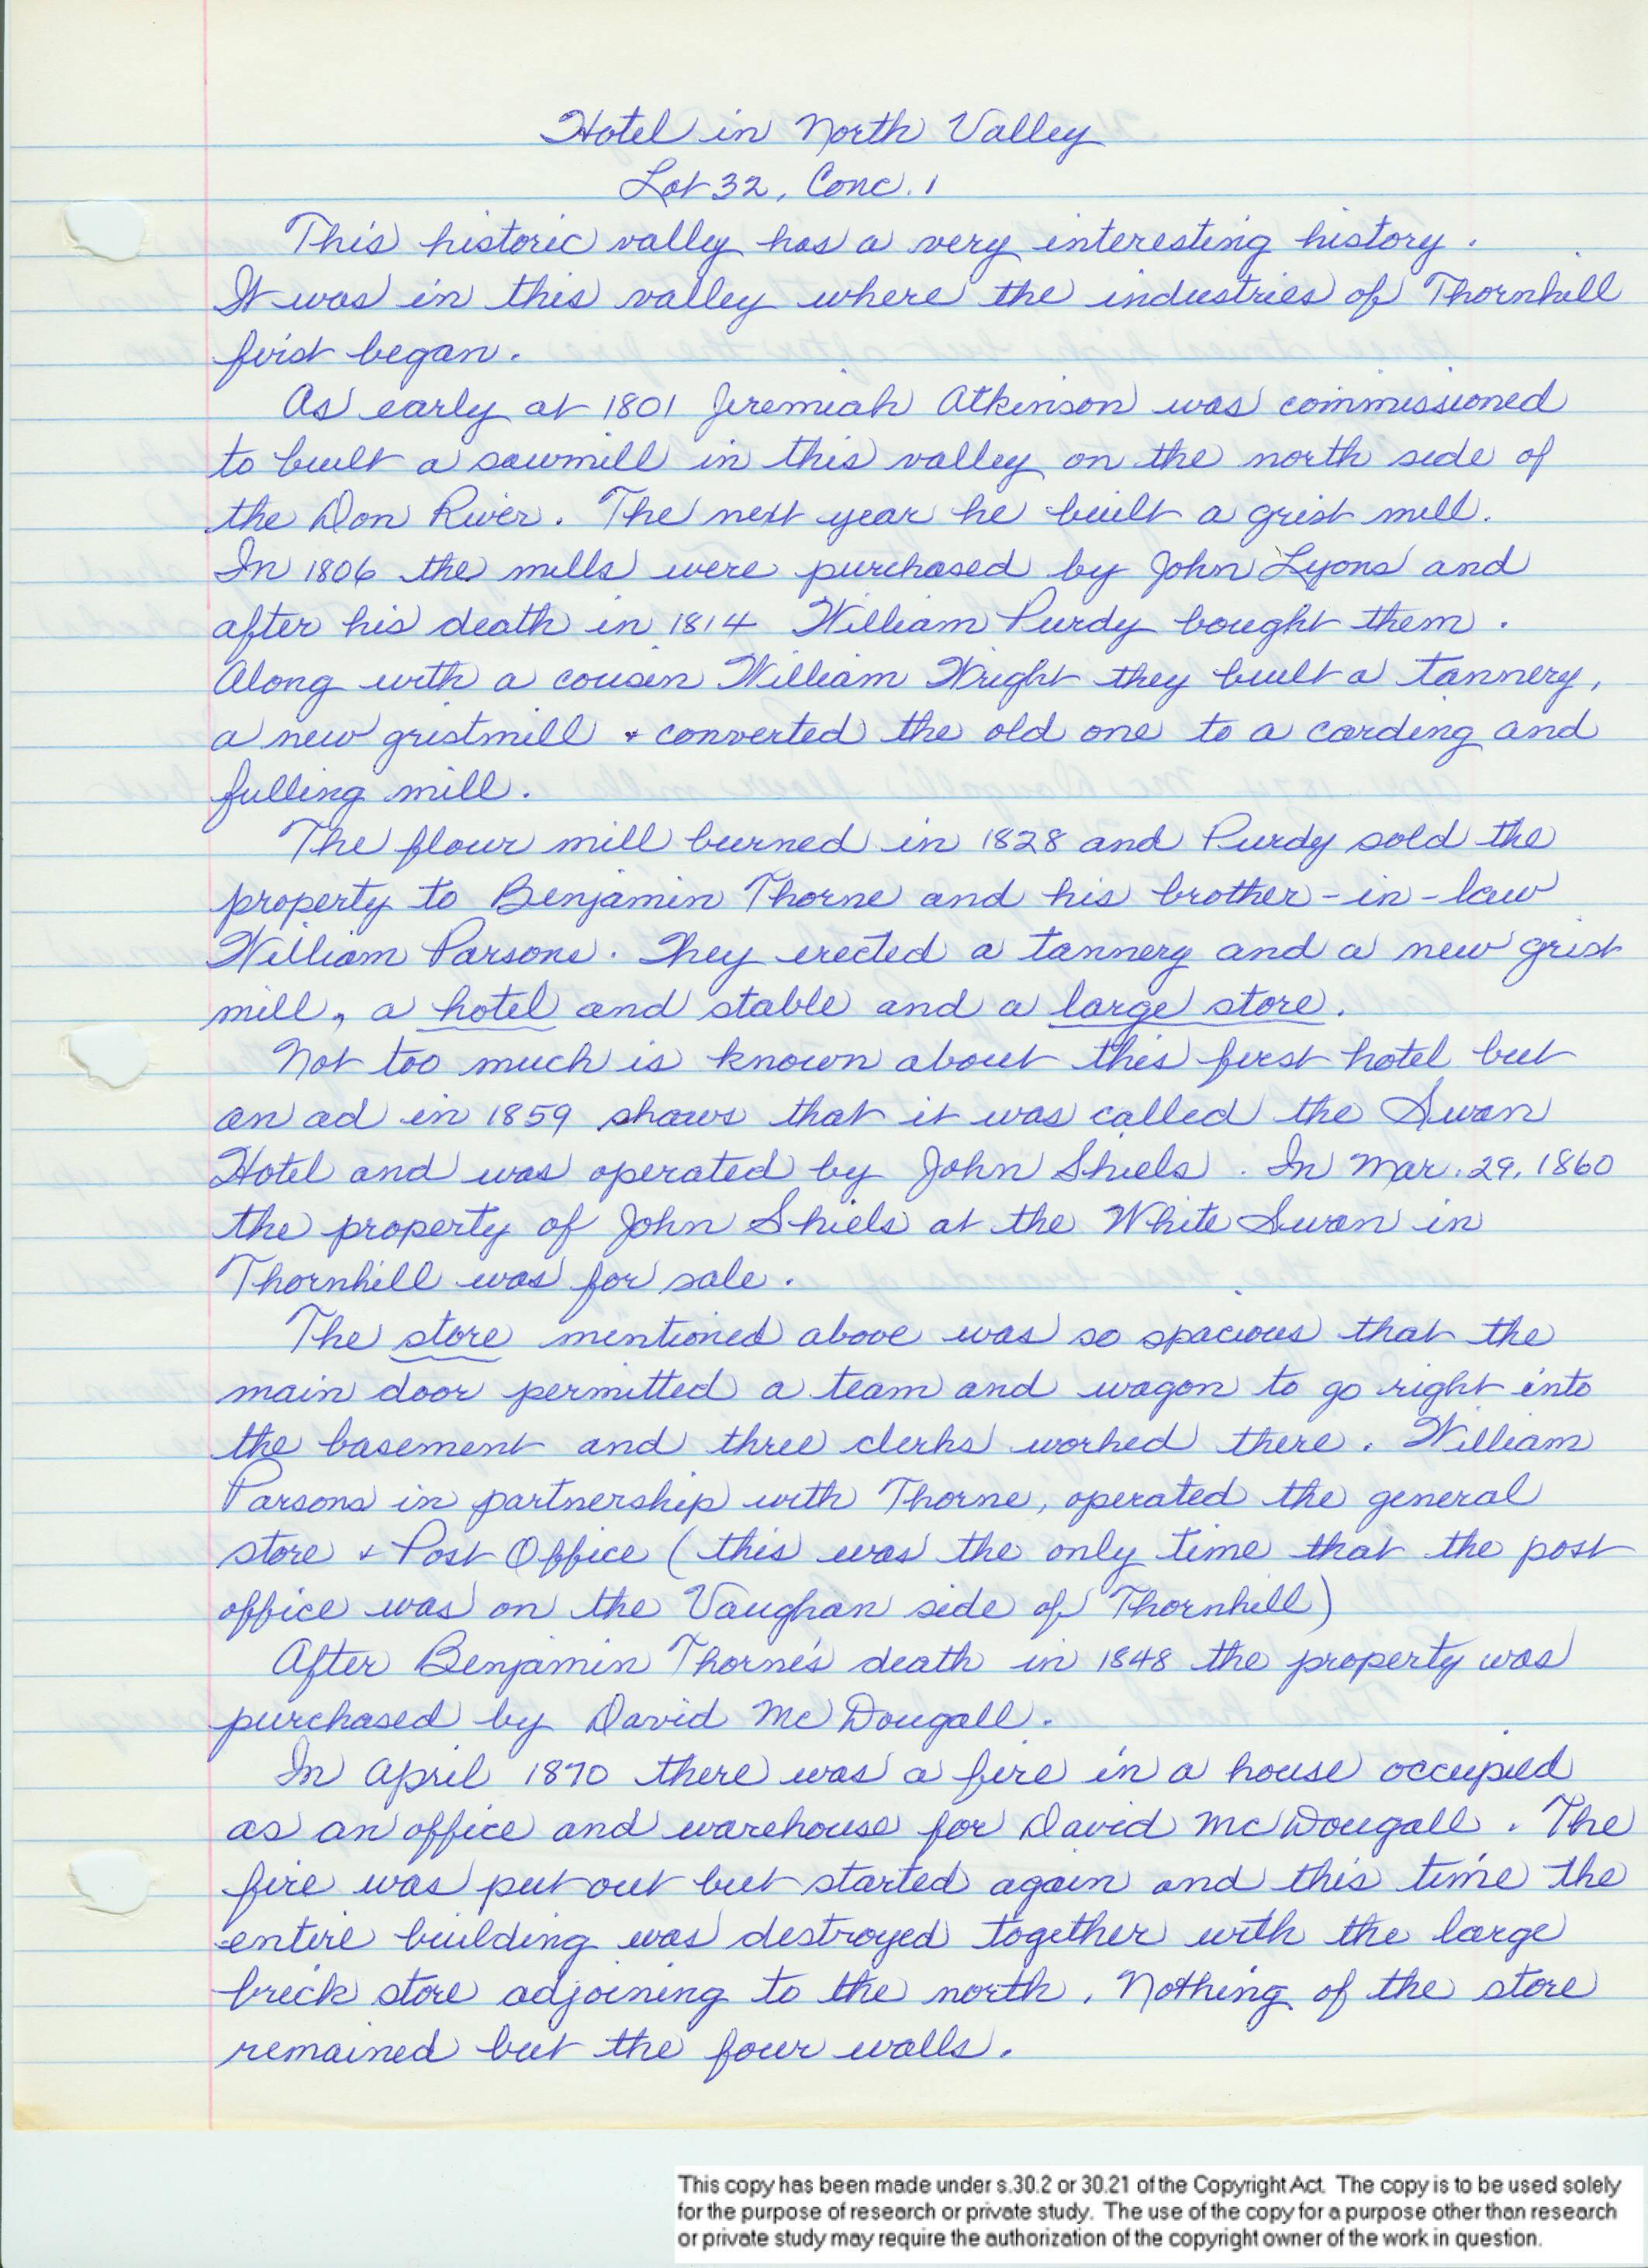 Hotel in North Valley
Lot 32, Conc. 1
This historic valley has a very interesting history.
It was in this valley where the industries of Thornhill
first began.
As early at 1801 Jeremiah Atkinson was commissioned
to built a sawmill in this valley on the north side of
the Don River. The next year he built a grist mill.
In 1806 the mills were purchased by John Lyons and
after his death in 1814 William Purdy bought them.
Along with a cousin William Wright they built a tannery,
a new gristmill + converted the old one to a carding and
fulling mill.
The flour mill burned in 1828 and Purdy sold the
property to Benjamin Thorne and his brother-in-law
William Parsons. They erected a tannery and a new grist
mill, a hotel and stable and a large store.
Not too much is known about this first hotel but
an ad in 1859 shows that it was called the Swan
Hotel and was operated by John Shiels. In Mar. 29, 1860
the property of John Shiels at the White Swan in
Thornhill was for sale.
The store mentioned above was so spacious that the
main door permitted a team and wagon to go right into
the basement and three clerks worked there. William
Parsons in partnership with Thorne, operated the general
store + Post Office (this was the only time that the post
office was on the Vaughan side of Thornhill)
After Benjamin Thorne's death in 1848 the property was
purchased by David McDougall.
In April 1870 there was a fire in a house occupied
as an office and warehouse for David McDougall. The
fire was put out but started again and this time the
entire building was destroyed together with the large
brick store adjoining to the north. Nothing of the store
remained but the four walls.
This copy has been made under s.30.2 or 30.21 of the Copyright Act. The copy is to be used solely
for the purpose of research or private study. The use of the copy for a purpose other than research
or private study may require the authorization of the copyright owner of the work in question.